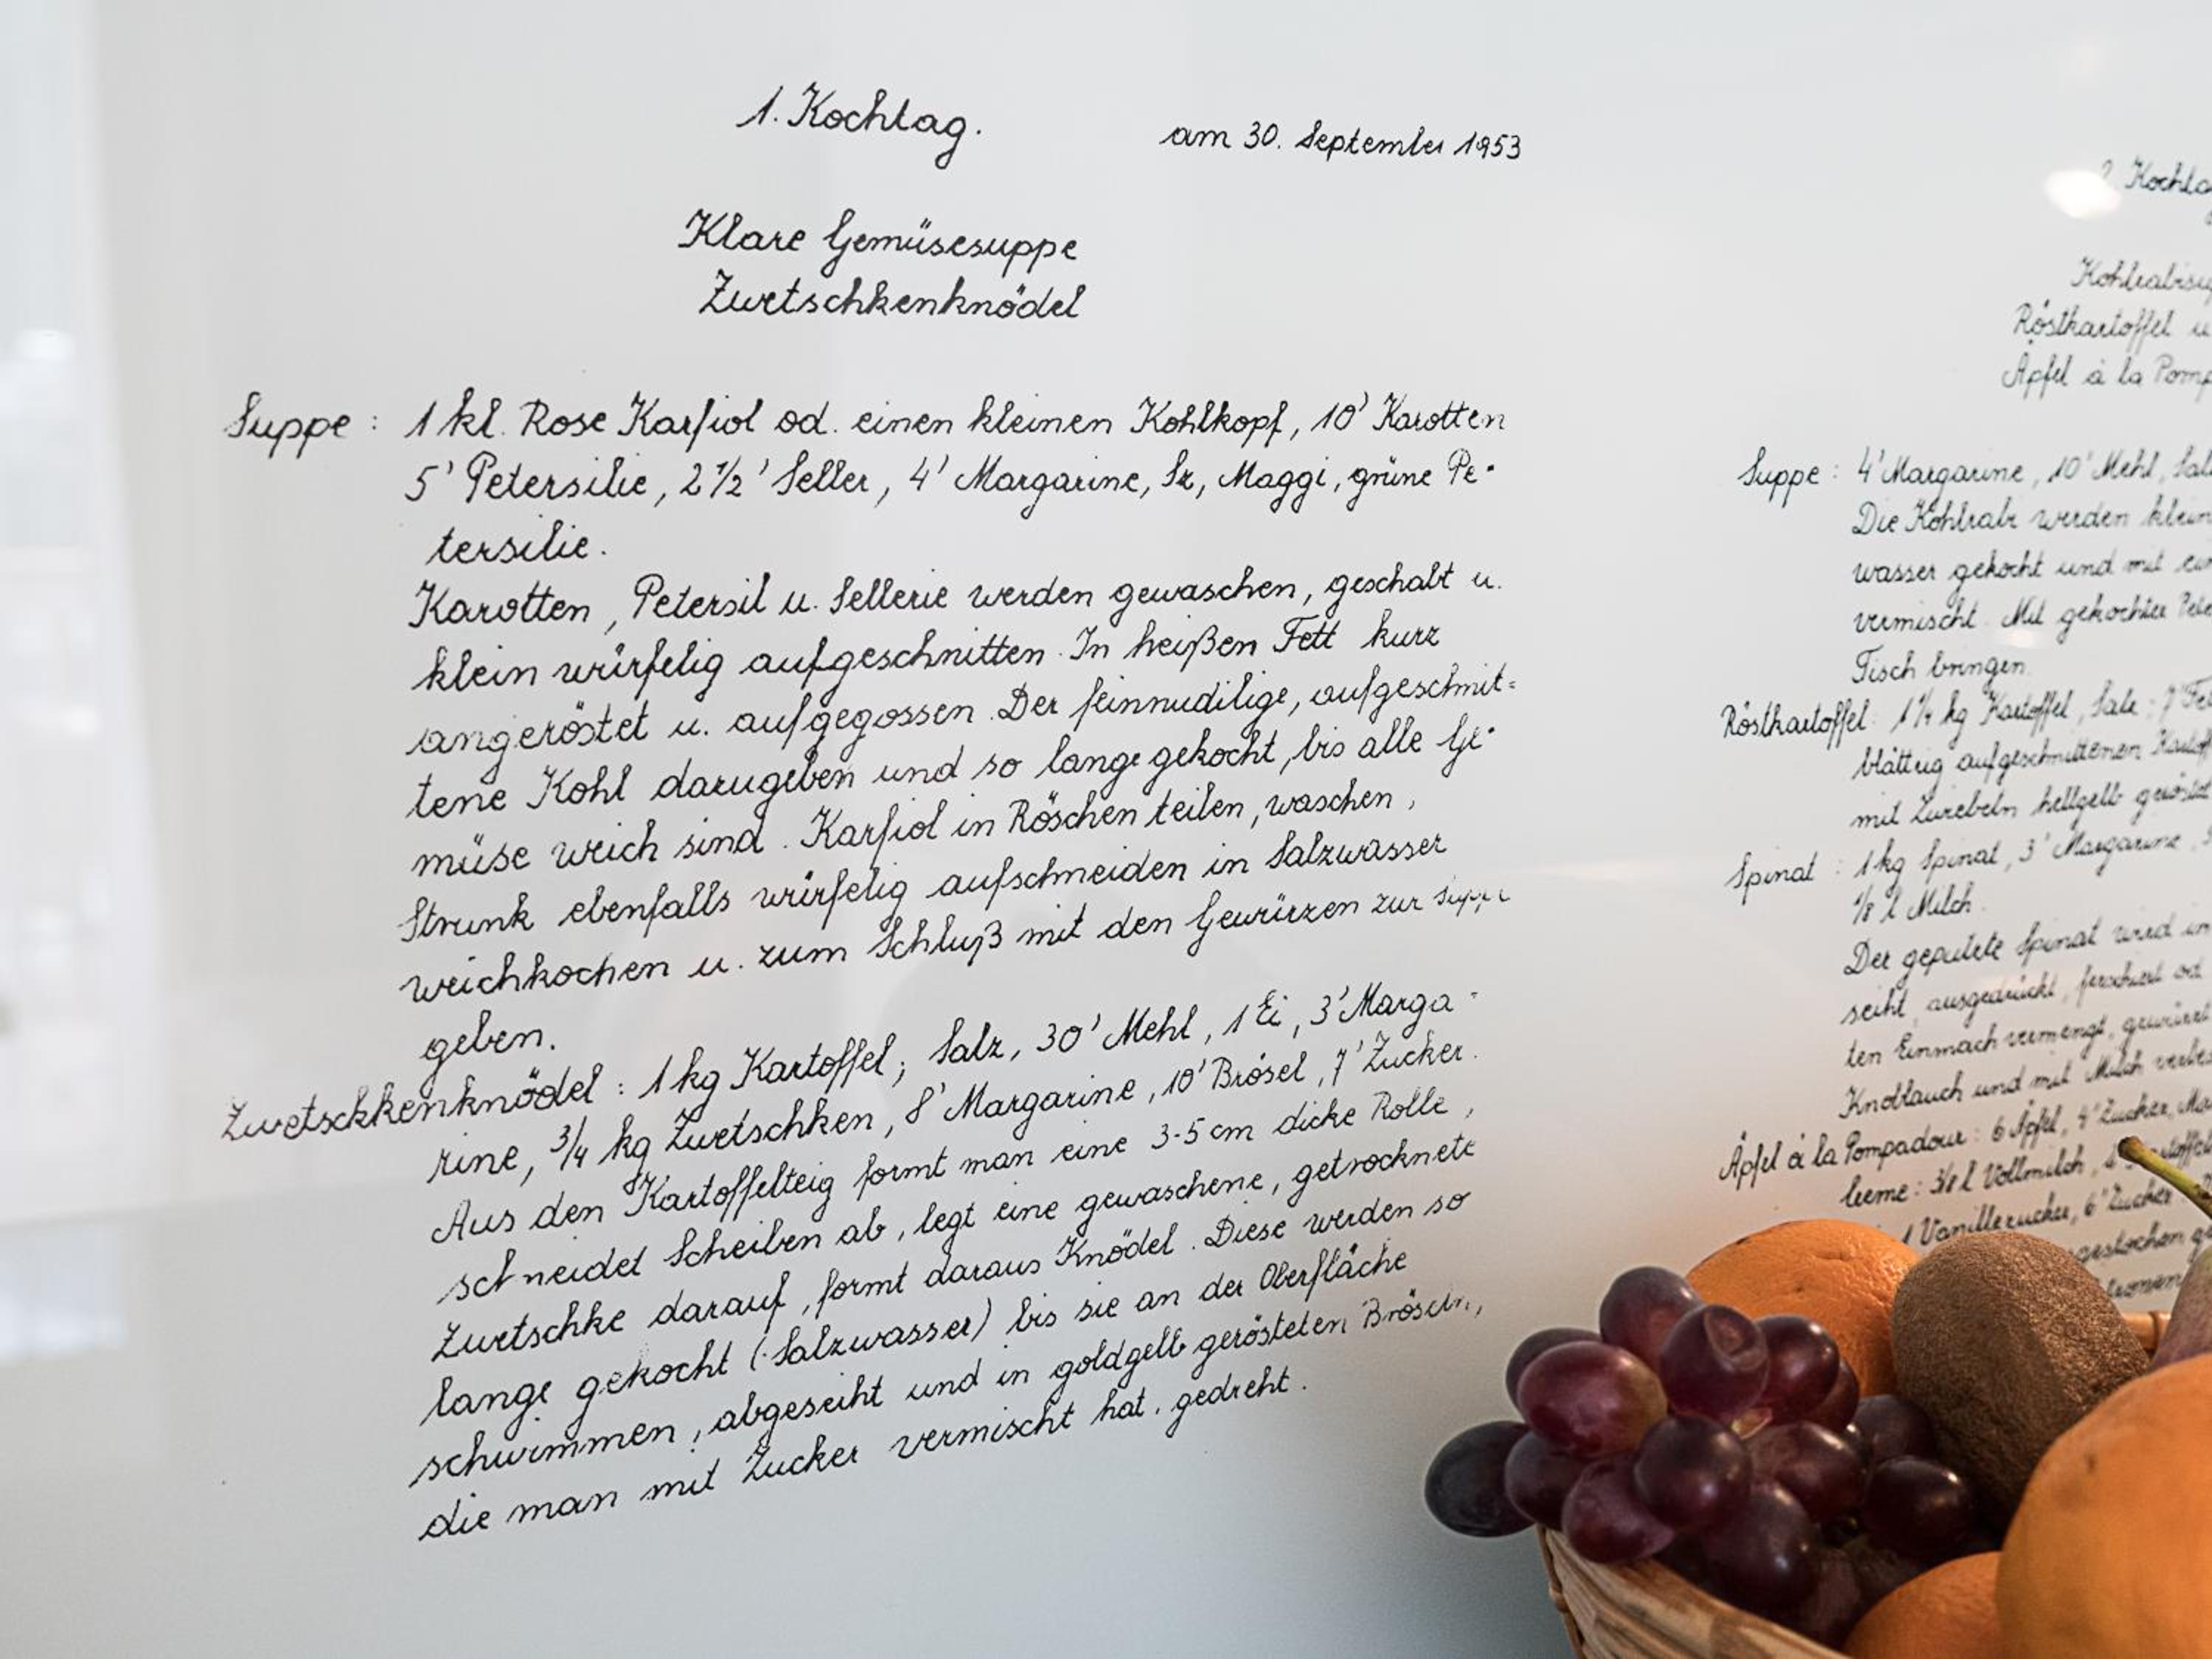 1. Kochtag.
am 30. September 1953
Klare Gemüsesuppe
Zwetschkenknödel
Suppe : 1 kl. Rose Karfiol od. einen kleinen Kohlkopf, 10' Karotten
5' Petersilie, 2 1/2' Seller, 4' Margarine, Sz, Maggi, grüne Pe-
tersilie.
Karotten, Petersil u. Sellerie werden gewaschen, geschabt u.
klein würfelig aufgeschnitten. In heißen Fett kurz
angeröstet u. aufgegossen. Der feinnudilige, aufgeschnit=
tene Kohl dazugeben und so lange gekocht, bis alle Ge-
müse weich sind. Karfiol in Röschen teilen, waschen,
Strunk ebenfalls würfelig aufschneiden in Salzwasser
weichkochen u. zum Schluß mit den Gewürzen zur Suppe
geben.
Zwetschkenknödel : 1 kg Kartoffel; Salz, 30' Mehl, 1 Ei, 3' Marga-
rine, 3/4 kg Zwetschken, 8' Margarine, 10' Brösel, 7' Zucker.
Aus den Kartoffelteig formt man eine 3-5 cm dicke Rolle,
schneidet Scheiben ab, legt eine gewaschene, getrocknete
Zwetschke darauf, formt daraus Knödel. Diese werden so
lange gekocht (Salzwasser) bis sie an der Oberfläche
schwimmen, abgeseiht und in goldgelb gerösteten Bröseln,
die man mit Zucker vermischt hat, gedreht.
Röstkartoffel
Äpfel à la
Suppe : 4' Margarine, 10' Mehl,
Die Kohlrabi werden klein
wasser gekocht und mit
vermischt. Mit gekochter
Tisch bringen.
Röstkartoffel : 1 1/4 kg Kartoffel, Salz, 7'
blättrig aufgeschnittenen
mit Zwiebeln hellgelb geröstet
Spinat : 1 kg Spinat, 3' Margarine,
1/8 l Milch.
Der geputzte Spinat wird in
seiht, ausgedrückt, od.
ten Einmach vermengt, gewürzt
Knoblauch und mit Milch
Äpfel à la Pompadour : 6 Äpfel, 4' Zucker,
3/8 l Vollmilch,
1 Vanillezucker, 6' Zucker